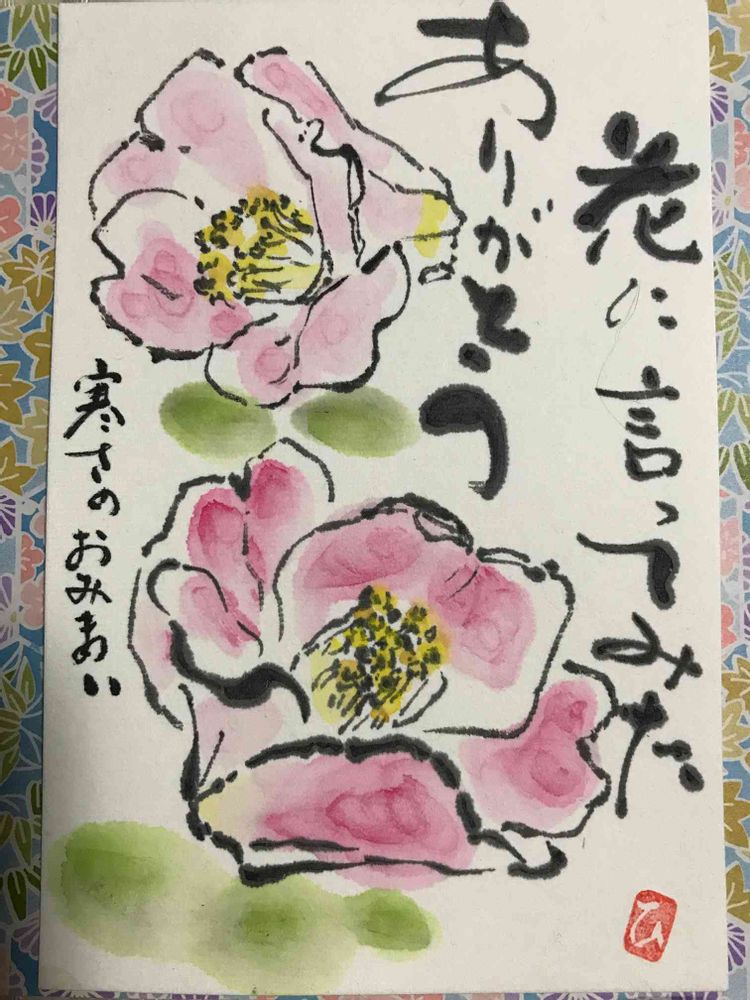 花に言ってみた
ありがとう
寒さのおみまい
ひ